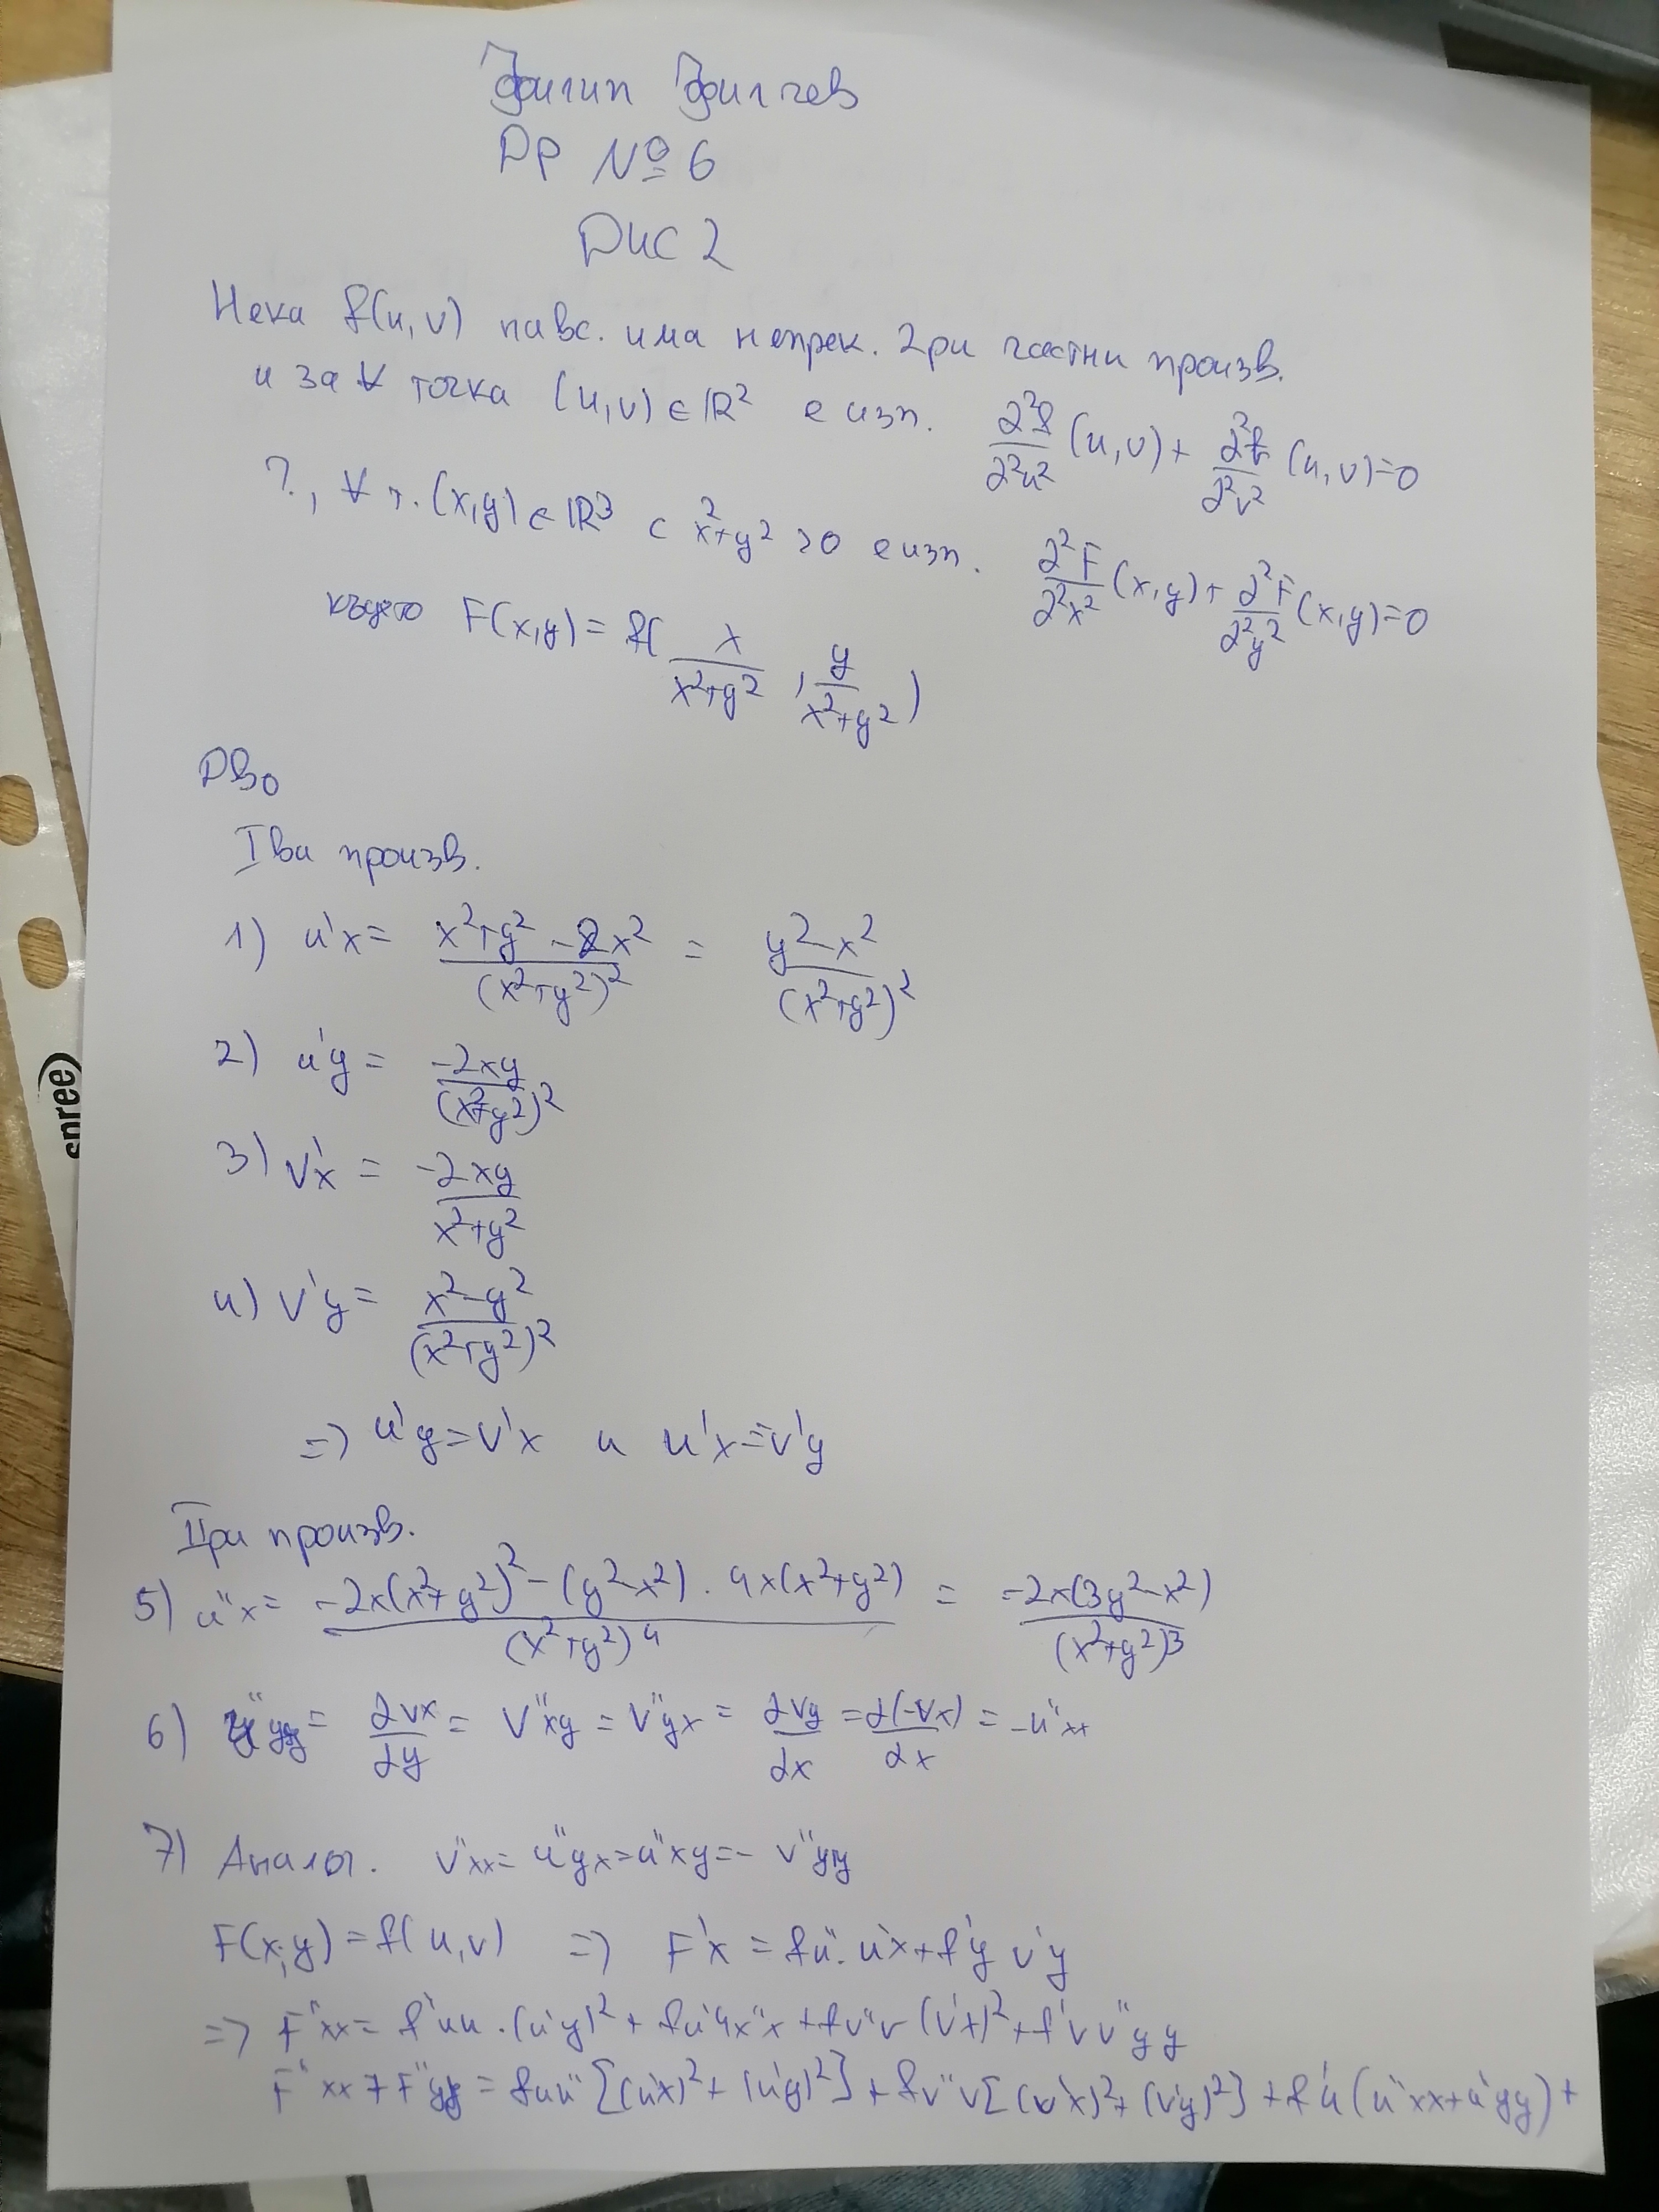 Филип Филчев
ДР № 6
Дис 2
Нека f(u,v) навс. има непрек. 2ри частни произв.
и за ∀ точка (u,v) ∈ ℝ² е изп. ∂²f/∂²u² (u,v) + ∂²f/∂²v² (u,v)=0
?, ∀ т. (x,y) ∈ ℝ³ с x²+y²>0 е изп. ∂²F/∂²x² (x,y) + ∂²F/∂²y² (x,y)=0
където F(x,y) = f( x/(x²+y²) , y/(x²+y²) )
Дво
Iви произв.
1) u'x = (x²+y²-2x²)/(x²+y²)² = (y²-x²)/(x²+y²)²
2) u'y = -2xy/(x²+y²)²
3) v'x = -2xy/(x²+y²)
4) v'y = (x²-y²)/(x²+y²)²
=> u'y=v'x и u'x=v'y
IIри произв.
5) u''x = (-2x(x²+y²)²-(y²-x²).4x(x²+y²))/(x²+y²)⁴ = -2x(3y²-x²)/(x²+y²)³
6) u''yy = ∂vx/∂y = v''xy = v''yx = ∂vy/∂x = ∂(-vx)/∂x = -u''xx
7) Аналог. v''xx = u''yx = u''xy = - v''yy
F(x,y) = f(u,v) => F'x = fu'. u'x + f'y v'y
=> F''xx = f''uu . (u'y)² + fu' u''xx + fv''v (v'x)² + f'v v''yy
F''xx + F''yy = fuu'' [(u'x)² + (u'y)²] + fv''v [(v'x)² + (v'y)²] + f'u (u''xx + u''yy) +
spree)